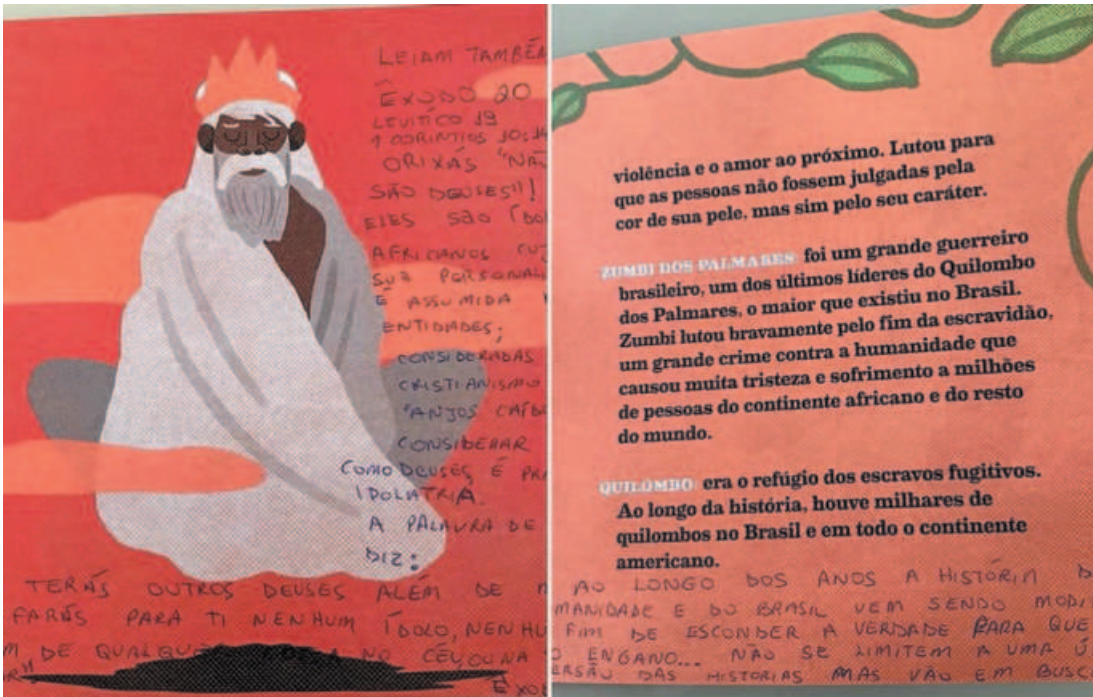 LEIAM TAMBÉM
ÊXODO 20
LEVÍTICO 19
1 CORINTIOS 10:14
ORIXAS "NÃO
SÃO DEUSES"!
ELES SÃO ÍDOL
AFRICANOS CUJ
SUA PERSONALI
É ASSUMIDA
ENTIDADES;
CONSIDERADAS
CRISTIANISMO
"ANJOS CAÍDO
CONSIDERAR
COMO DEUSES É PRA
IDOLATRIA.
A PALAVRA DE
DIZ:
TERÁS OUTROS DEUSES ALÉM DE
FARÁS PARA TI NENHUM ÍDOLO, NENHU
M DE QUALQUER NO CÉU, OU NA
violência e o amor ao próximo. Lutou para
que as pessoas não fossem julgadas pela
cor de sua pele, mas sim pelo seu caráter.
ZUMBI DOS PALMARES foi um grande guerreiro
brasileiro, um dos últimos líderes do Quilombo
dos Palmares, o maior que existiu no Brasil.
Zumbi lutou bravamente pelo fim da escravidão,
um grande crime contra a humanidade que
causou muita tristeza e sofrimento a milhões
de pessoas do continente africano e do resto
do mundo.
QUILOMBO era o refúgio dos escravos fugitivos.
Ao longo da história, houve milhares de
quilombos no Brasil e em todo o continente
americano.
AO LONGO DOS ANOS A HISTÓRIA D
MANIDADE E DO BRASIL VEM SENDO MODI
FIM DE ESCONDER A VERDADE PARA QUE
O ENGANO... NÃO SE LIMITEM A UMA Ú
ERSÃO DAS HISTORIAS MAS VÃO EM BUSC